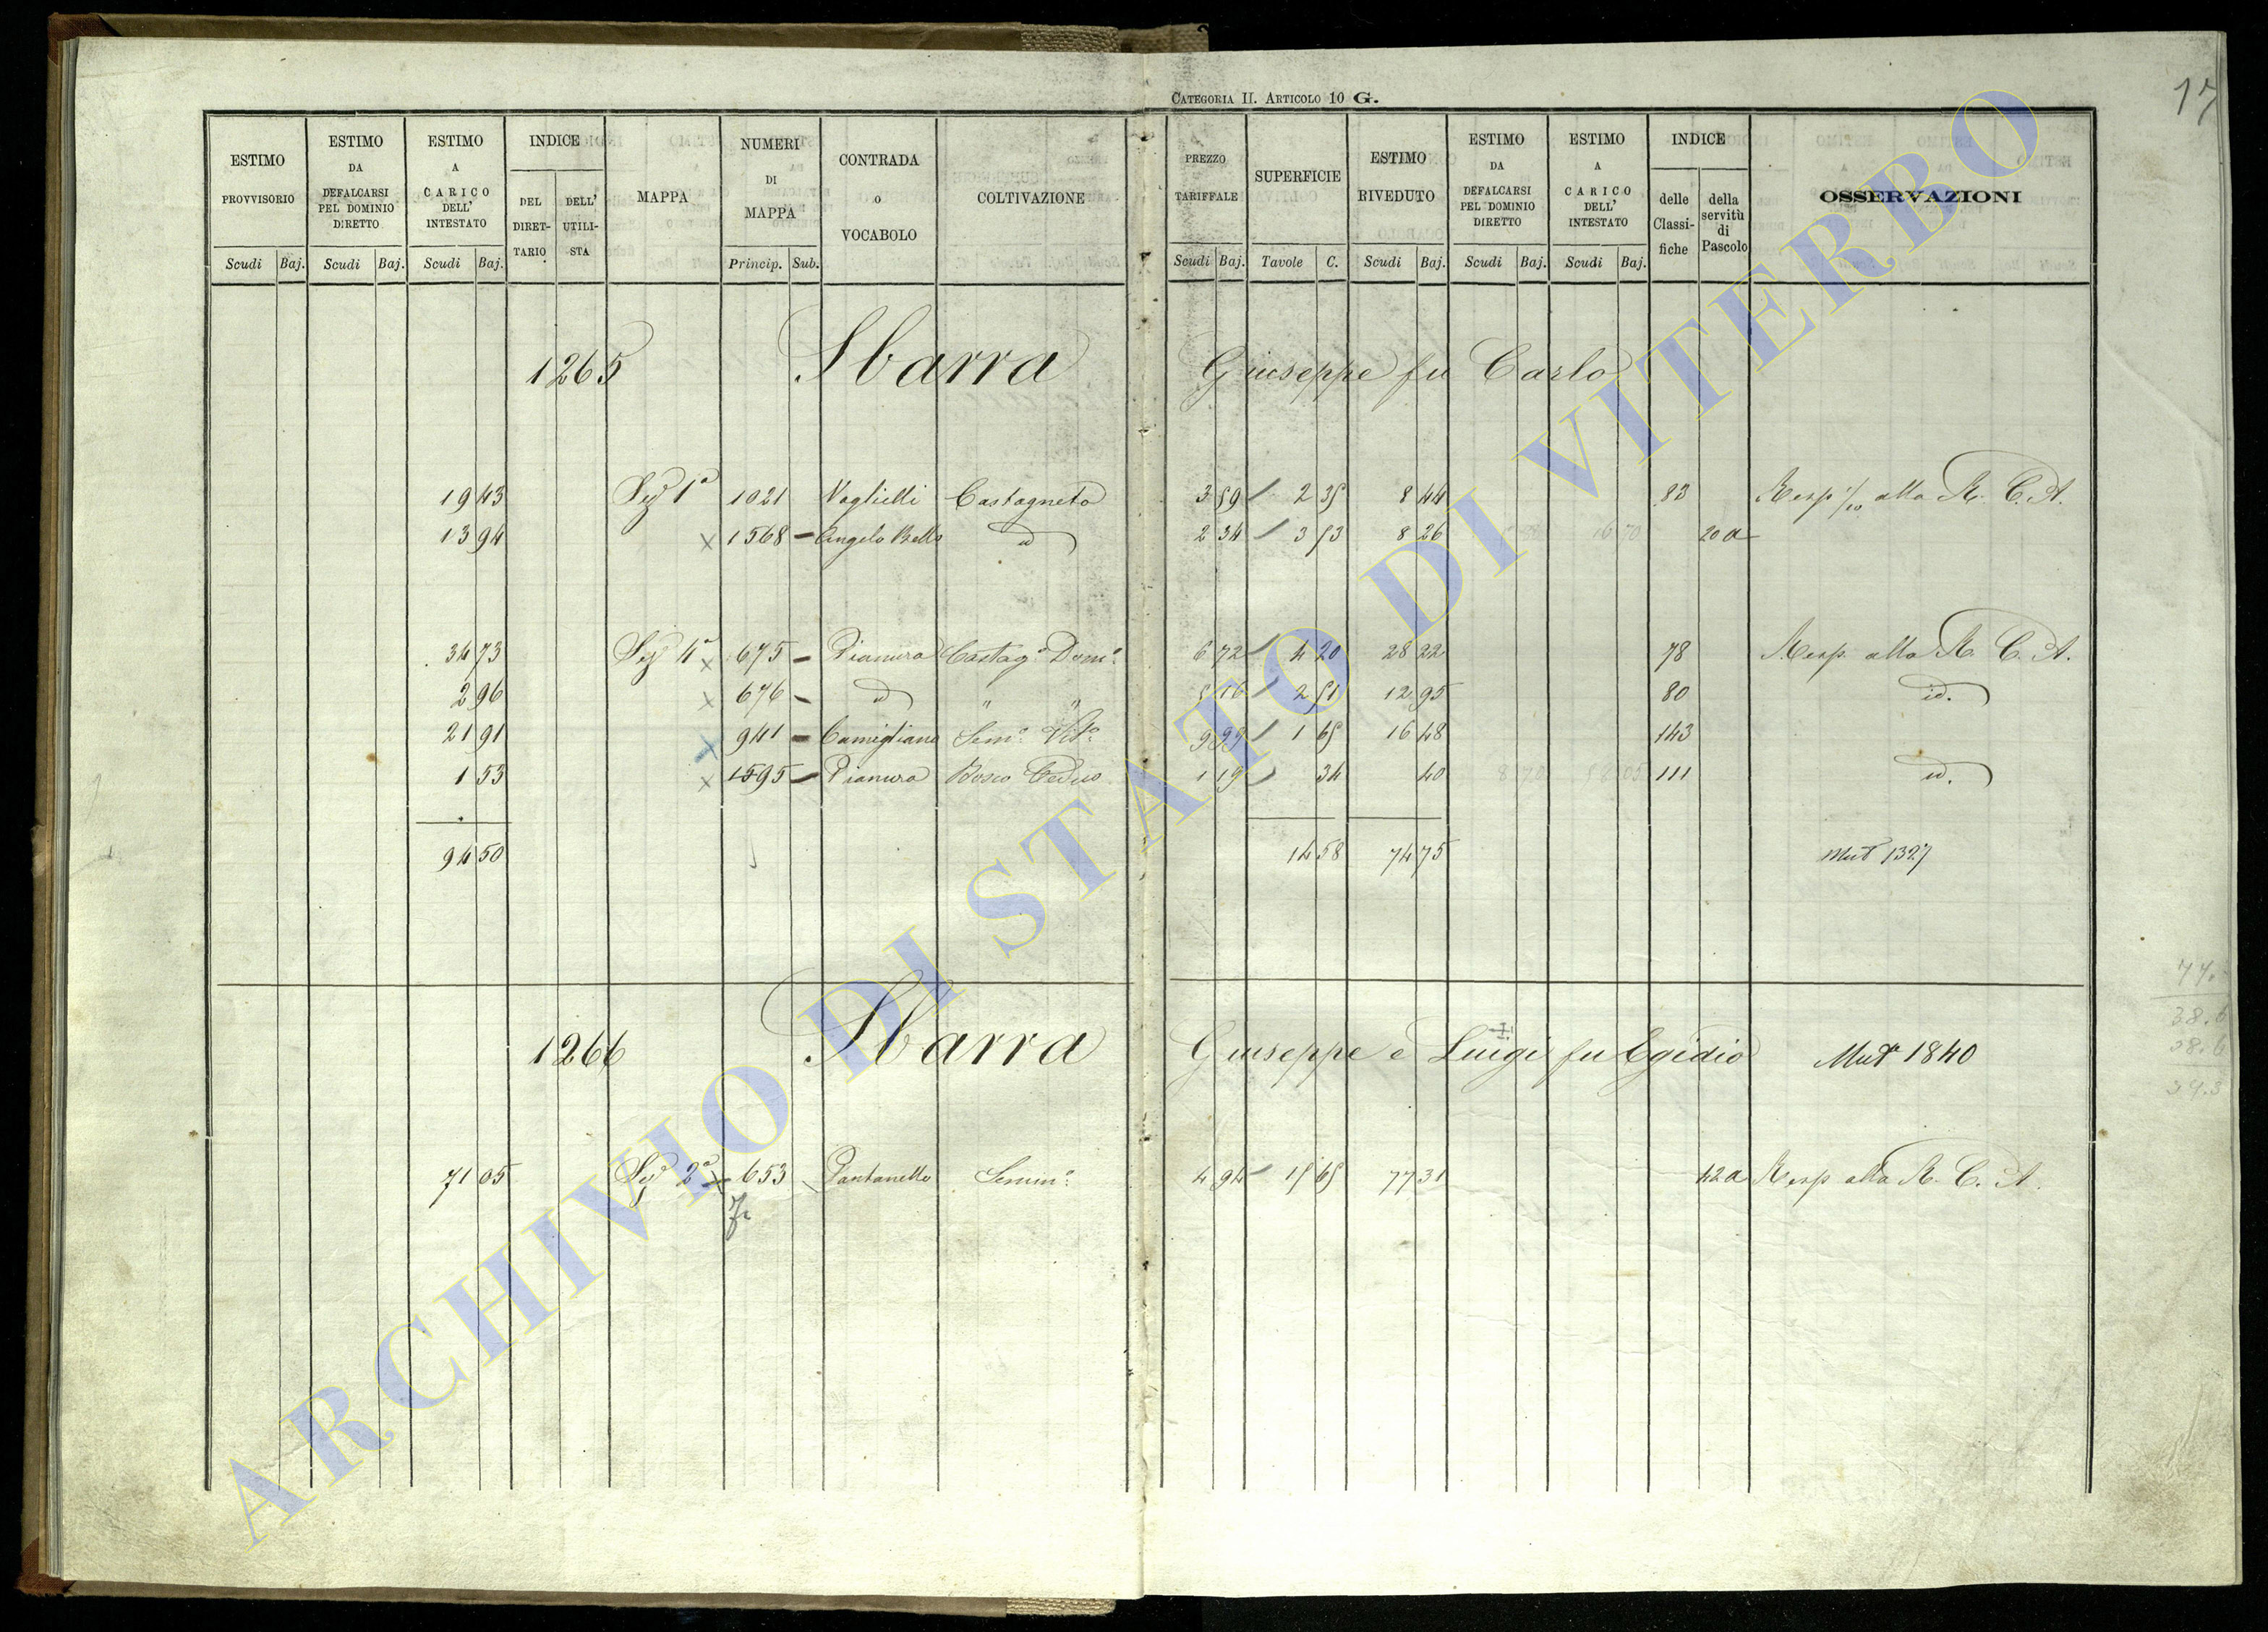 CATEGORIA II. ARTICOLO 10 G.
17
ESTIMO PROVVISORIO Scudi Baj.
ESTIMO DA DEFALCARSI PEL DOMINIO DIRETTO Scudi Baj.
ESTIMO A CARICO DELL' INTESTATO Scudi Baj.
INDICE DEL DIRETTARIO DELL' UTILISTA
MAPPA
NUMERI DI MAPPA Princip. Sub.
CONTRADA O VOCABOLO
COLTIVAZIONE
PREZZO TARIFFALE Scudi Baj.
SUPERFICIE Tavole C.
ESTIMO RIVEDUTO Scudi Baj.
ESTIMO DA DEFALCARSI PEL DOMINIO DIRETTO Scudi Baj.
ESTIMO A CARICO DELL' INTESTATO Scudi Baj.
INDICE delle Classifiche della servitù di Pascolo
OSSERVAZIONI
1265 Sbarra Giuseppe fu Carlo
19 43 Sez 1a 1021 Castagneto 3 59 2 35 8 44 83 Resp 1/10 alla R. C. A.
13 94 x 1568 - Angelo Bello id 2 34 3 53 8 26 20 a
34 73 Sez 4a x 675 - Pianura Castag. Dom. 6 72 4 20 28 22 78 Resp. alla R. C. A.
2 96 x 676 - id " " 5 16 2 51 12 95 80 id.
21 91 x 941 - Camigliano Sem. Vit. 9 99 1 65 16 48 143
1 53 x 1595 - Pianura Bosco Ceduo 1 19 34 40 111 id.
94 50 14 58 74 75 Mut 1327
1266 Sbarra Giuseppe e Luigi fu Egidio Mut 1840
71 05 Sez 2a x 653 Pantanello Semin. 4 94 15 65 77 31 42a Resp alla R. C. A.
77.
38.6
38.6
ARCHIVIO DI STATO DI VITERBO